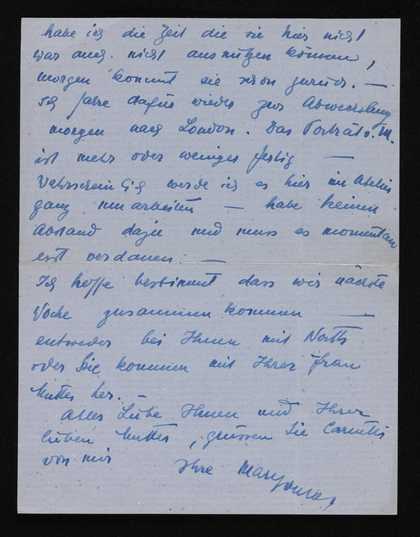 habe ich die Zeit die sie hier nicht
war auch nicht ausnützen können,
morgen kommt sie schon zurück. —
Ich fahre dafür wieder zur Abwechslung
morgen nach London. Das Porträt v. M.
ist mehr oder weniger fertig —
werde ich es hier im
arbeiten — habe keinen
Abstand dazu und muss es momentan
erst verdauen. —
Ich hoffe bestimmt dass wir nächste
Woche zusammen kommen —
entweder bei Ihnen mit
oder Sie kommen mit Ihrer Frau
Mutter her. —
Alles Liebe Ihnen und Ihrer
lieben Mutter, grüssen Sie
von mir Ihre